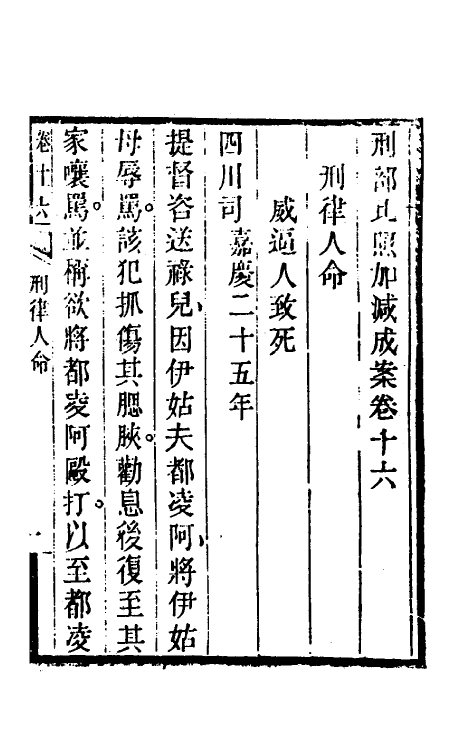 刑部比照加減成案卷十六
刑律人命
威逼人致死
四川司 嘉慶二十五年
提督咨送祿兒因伊姑夫都凌阿將伊姑
母辱罵。該犯抓傷其腮腴。勸息後復至其
家嚷罵。並稱欲將都凌阿毆打。以至都凌
卷十六 刑律人命 一